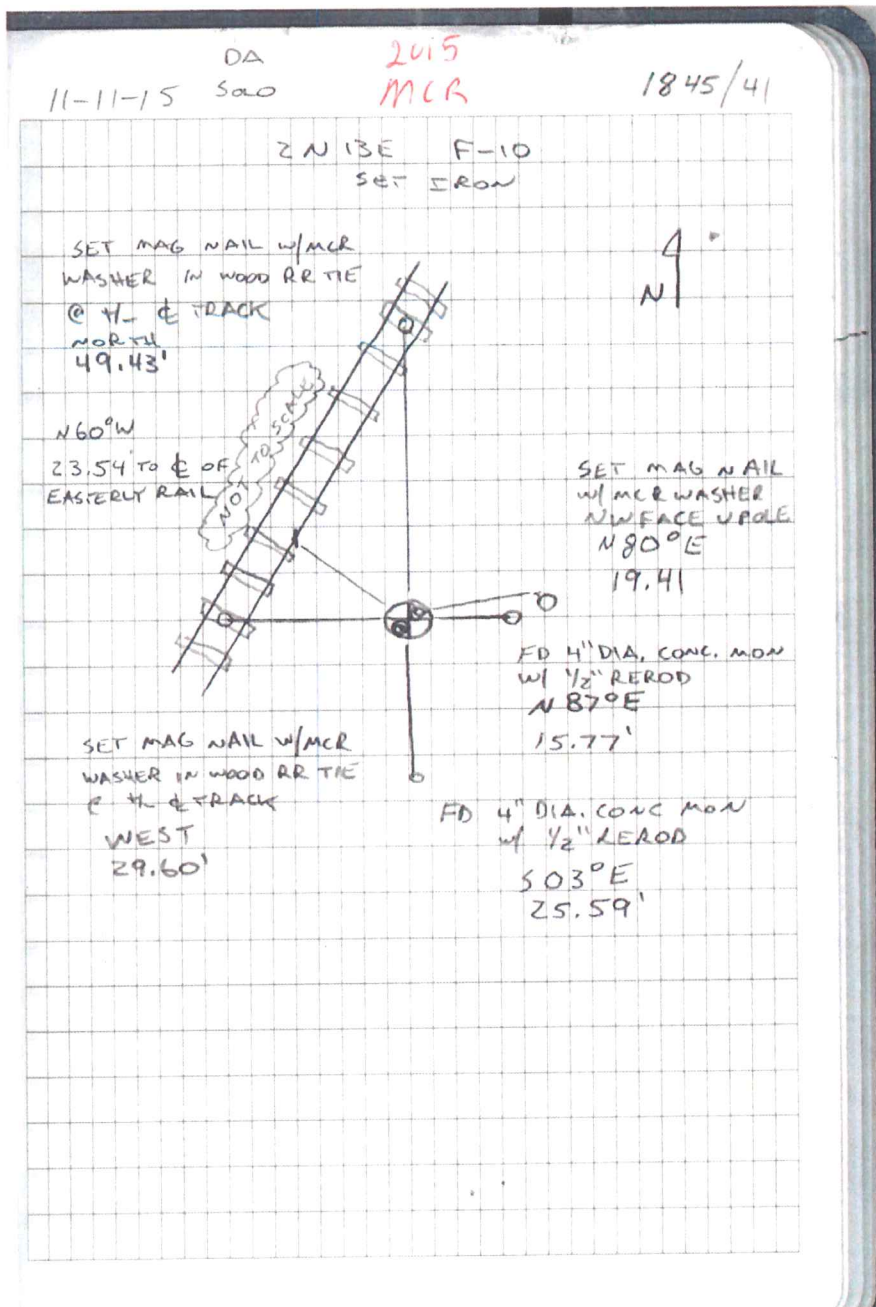 DA
2015
11-11-15 SOLO
MCR
1845/41
2N 13E F-10
SET IRON
SET MAG NAIL W/MCR
WASHER IN WOOD RR TIE
@ +/- ℄ TRACK
NORTH
49.43'
N
N60°W
23.54' TO ℄ OF
EASTERLY RAIL
NOT TO SCALE
SET MAG NAIL
W/MCR WASHER
NW FACE UPOLE
N80°E
19.41
FD 4" DIA. CONC. MON
W/ 1/2" REROD
N87°E
15.77'
SET MAG NAIL W/MCR
WASHER IN WOOD RR TIE
@ +/- ℄ TRACK
WEST
29.60'
FD 4" DIA. CONC MON
W/ 1/2" REROD
S03°E
25.59'